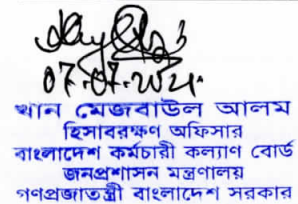 07.07.2021
খান মেজবাউল আলম
হিসাবরক্ষণ অফিসার
বাংলাদেশ কর্মচারী কল্যাণ বোর্ড
জনপ্রশাসন মন্ত্রণালয়
গণপ্রজাতন্ত্রী বাংলাদেশ সরকার